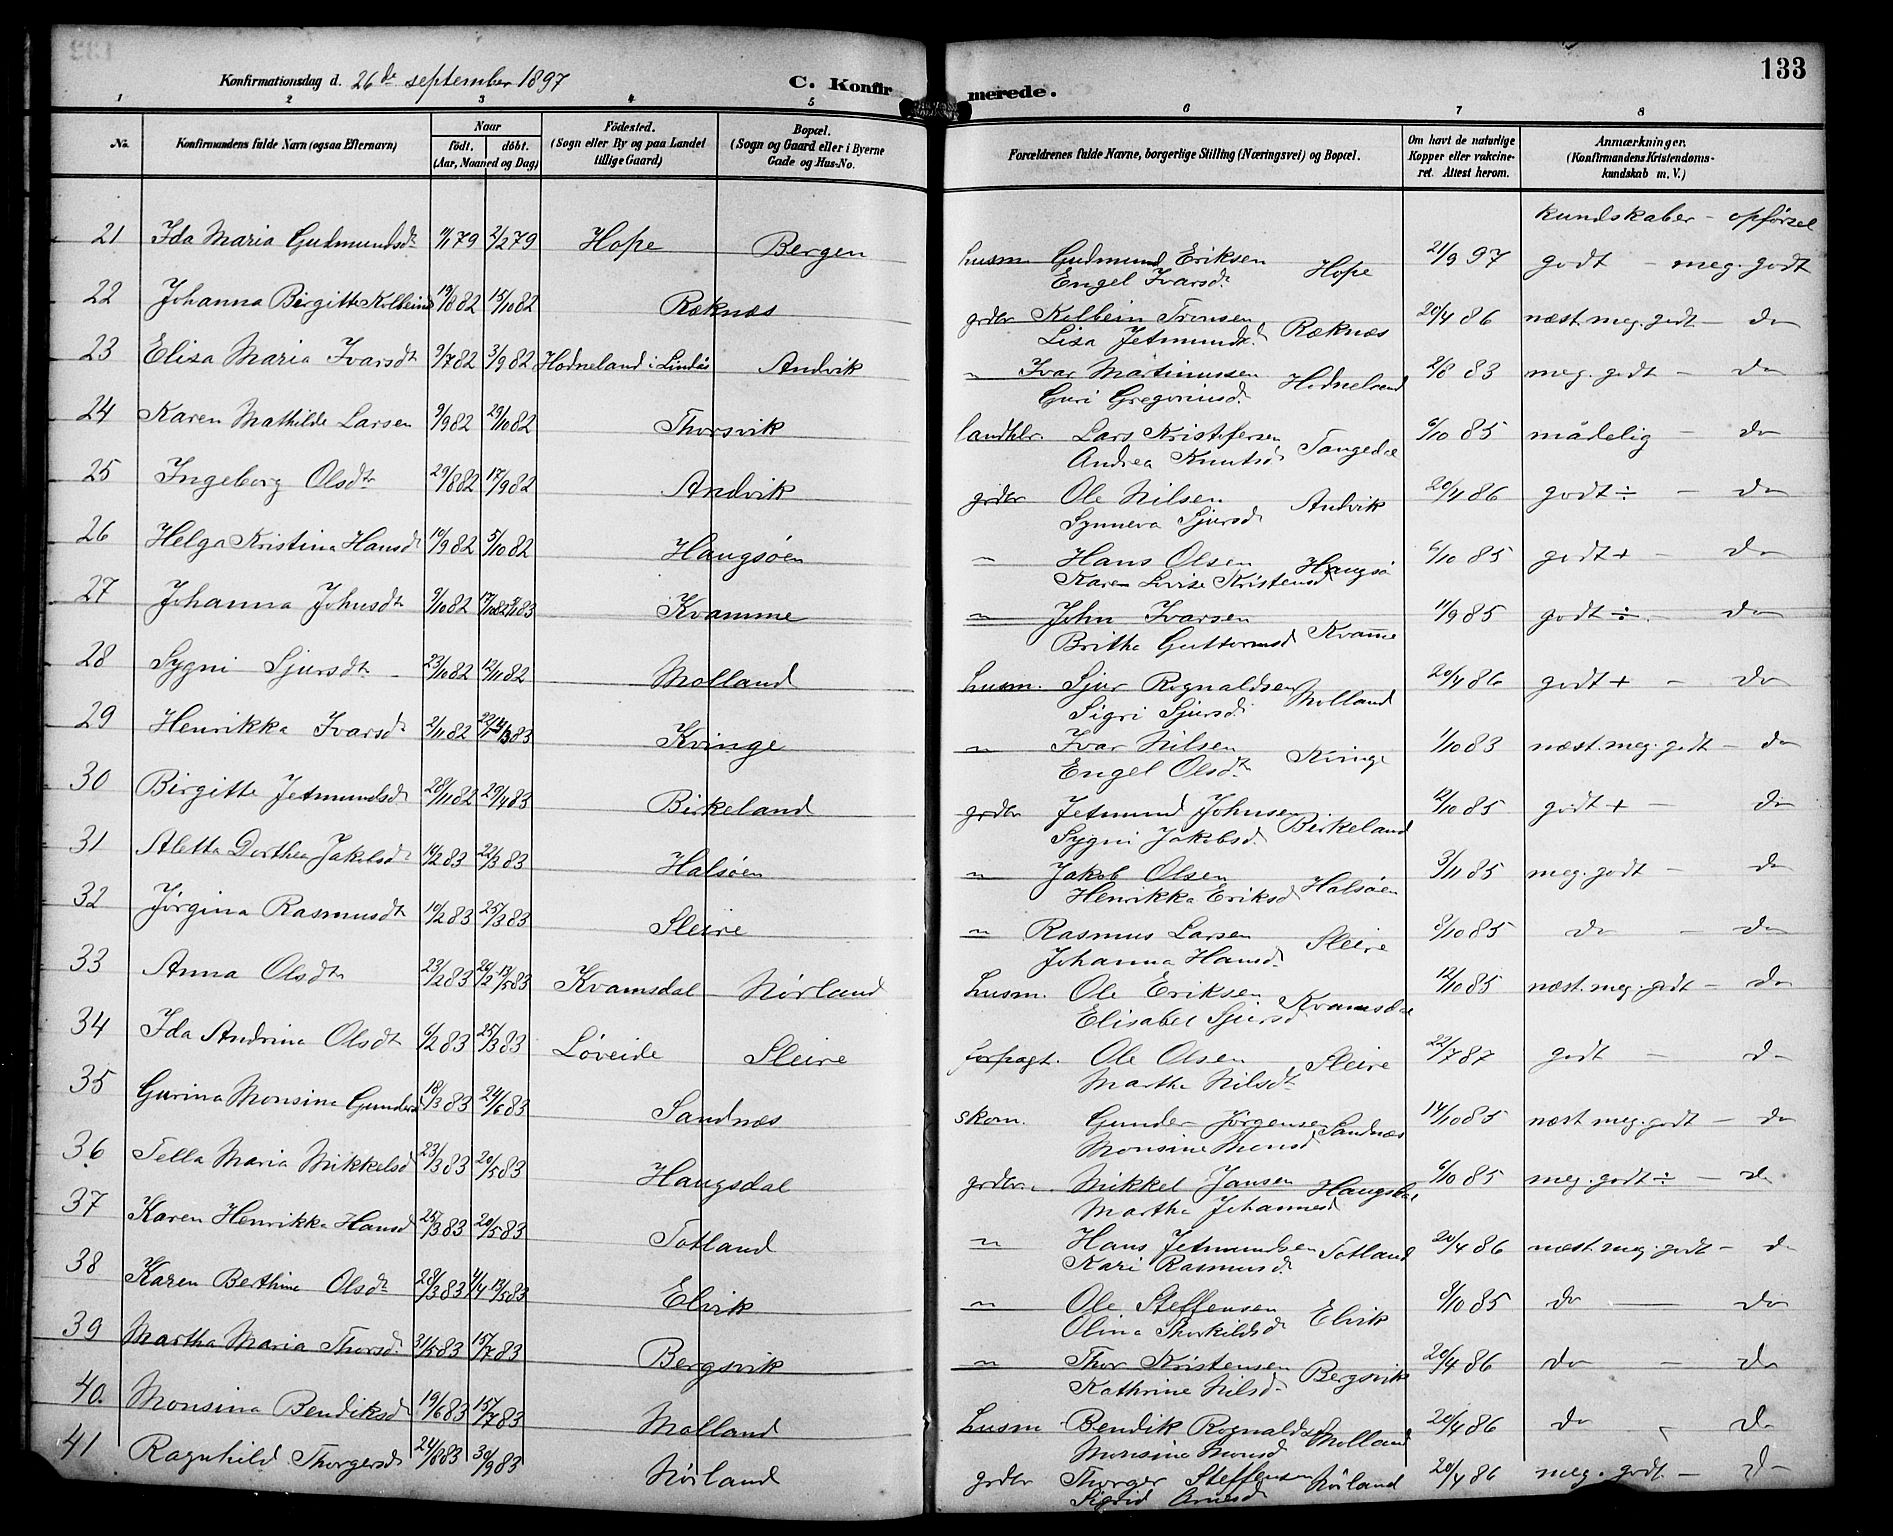 133
Konfirmationsdag d. 26de september 1897
C. Konfirmerede.
1 2 3 4 5 6 7 8
No. Konfirmandens fulde Navn (ogsaa Efternavn) Naar födt. döbt. (Aar, Maaned og Dag) Födested. (Sogn eller By og paa Landet tillige Gaard) Bopæl. (Sogn og Gaard eller i Byerne Gade og Hus-No. Forældrenes fulde Navne, borgerlige Stilling (Næringsvei) og Bopæl. Om havt de naturlige Kopper eller vakcineret. Attest herom. Anmærkninger. (Konfirmandens Kristendomskundskab m. V.)
kundskaber - opførsel
21 Ida Maria Gudmundsdr 2/2 79 Hope Bergen husm. Gudmund Eriksen Hope 21/9 97 godt - meg. godt
Engel Ivarsdr
22 Johanna Birgitte Kolbeinsd 13/8 82 15/10 82 Ræknæs grdbr Kolbein Tronsen Ræknæs 20/4 86 næst. meg. godt - do
Lisa Jetmundsd.
23 Elisa Maria Ivarsdt 9/7 82 3/9 82 Hodneland i Lindås Andvik " Ivar Martinussen Hodneland 2/8 83 meg. godt - do
Guri Gregoriusd.
24 Karen Mathilde Larsen 9/9 82 29/10 82 Thorsvik landhlr. Lars Kristofersen Tangedal 6/10 85 mådelig - do
Andrea Knutsd
25 Ingeborg Olsdtr 29/8 82 17/9 82 Andvik grdbr Ole Nilsen Andvik 20/4 86 godt ÷ - do
Synneva Sjursd
26 Helga Kristina Hansdt 19/9 82 5/10 82 Haugsøen " Hans Olsen Haugsö 6/10 85 godt + - do
Karen Lovise Kristensd
27 Johanna Johnsdt 9/10 82 Kvamme " John Ivarsen Kvamme 11/9 85 godt ÷ - do
Britha Guttormsd
28 Sygni Sjursdt 23/10 82 12/11 82 Molland husm. Sjur Rognaldsen Molland 20/4 86 godt + - do
Sigri Sjursd.
29 Henrikka Ivarsdt 2/11 82 Kvinge " Ivar Nilsen Kvinge 1/10 83 næst. meg. godt - do
Engel Olsdt
30 Birgitte Jetmundsd 20/11 82 29/4 83 Birkeland grdbr Jetmund Johnsen Birkeland 12/10 85 godt + - do
Sygni Jakobsd.
31 Aletta Dorthea Jakobsd 14/2 83 22/3 83 Halsøen " Jakob Olsen Halsøen 3/11 85 meg. godt - do
Henrikka Eriksd
32 Jörgina Rasmusdt 19/2 83 25/3 83 Sleire " Rasmus Larsen Sleire 8/10 85 do - do
Johanna Hansd.
33 Anna Olsdtr 23/2 83 Kvamsdal Nørland husm. Ole Eriksen Kvamsdal 12/10 85 næst. meg. godt - do
Elisabet Sjursd
34 Ida Andrina Olsdt 6/2 83 25/3 83 Løveide Sleire forpagt. Ole Olsen Sleire 22/7 87 godt - do
Martha Nilsdt
35 Gurina Monsina Gundersd 18/3 83 24/6 83 Sandnæs skom. Gunder Jörgensen Sandnæs 14/10 85 næst meg. godt - do
Monsine Monsd
36 Tella Maria Mikkelsd 23/3 83 20/5 83 Haugsdal grdbr. Mikkel Jansen Haugsdal 6/10 85 meg. godt ÷ - do
Martha Johannesd
37 Karen Henrikka Hansd 25/3 83 20/5 83 Totland " Hans Jetmundsen Totland 20/4 86 næst. meg. godt - do
Kari Rasmusd.
38 Karen Berthine Olsdt 28/3 83 Elvik " Ole Steffensen Elvik 8/10 85 do - do
Olina Thorkildsd
39 Martha Maria Thorsd. 31/5 83 15/7 83 Bergsvik " Thor Kristensen Bergsvik 20/4 86 do - do
Kathrine Nilsd.
40. Monsina Bendiksd 19/6 83 15/7 83 Molland husm Bendik Rognaldsen Molland 20/4 86 do - do
Monsine Monsd
41 Ragnhild Thorgersd 24/8 83 30/9 83 Nørland grdbr Thorger Steffensen Nørland 20/4 86 meg. godt. - do
Sigrid Arnesd